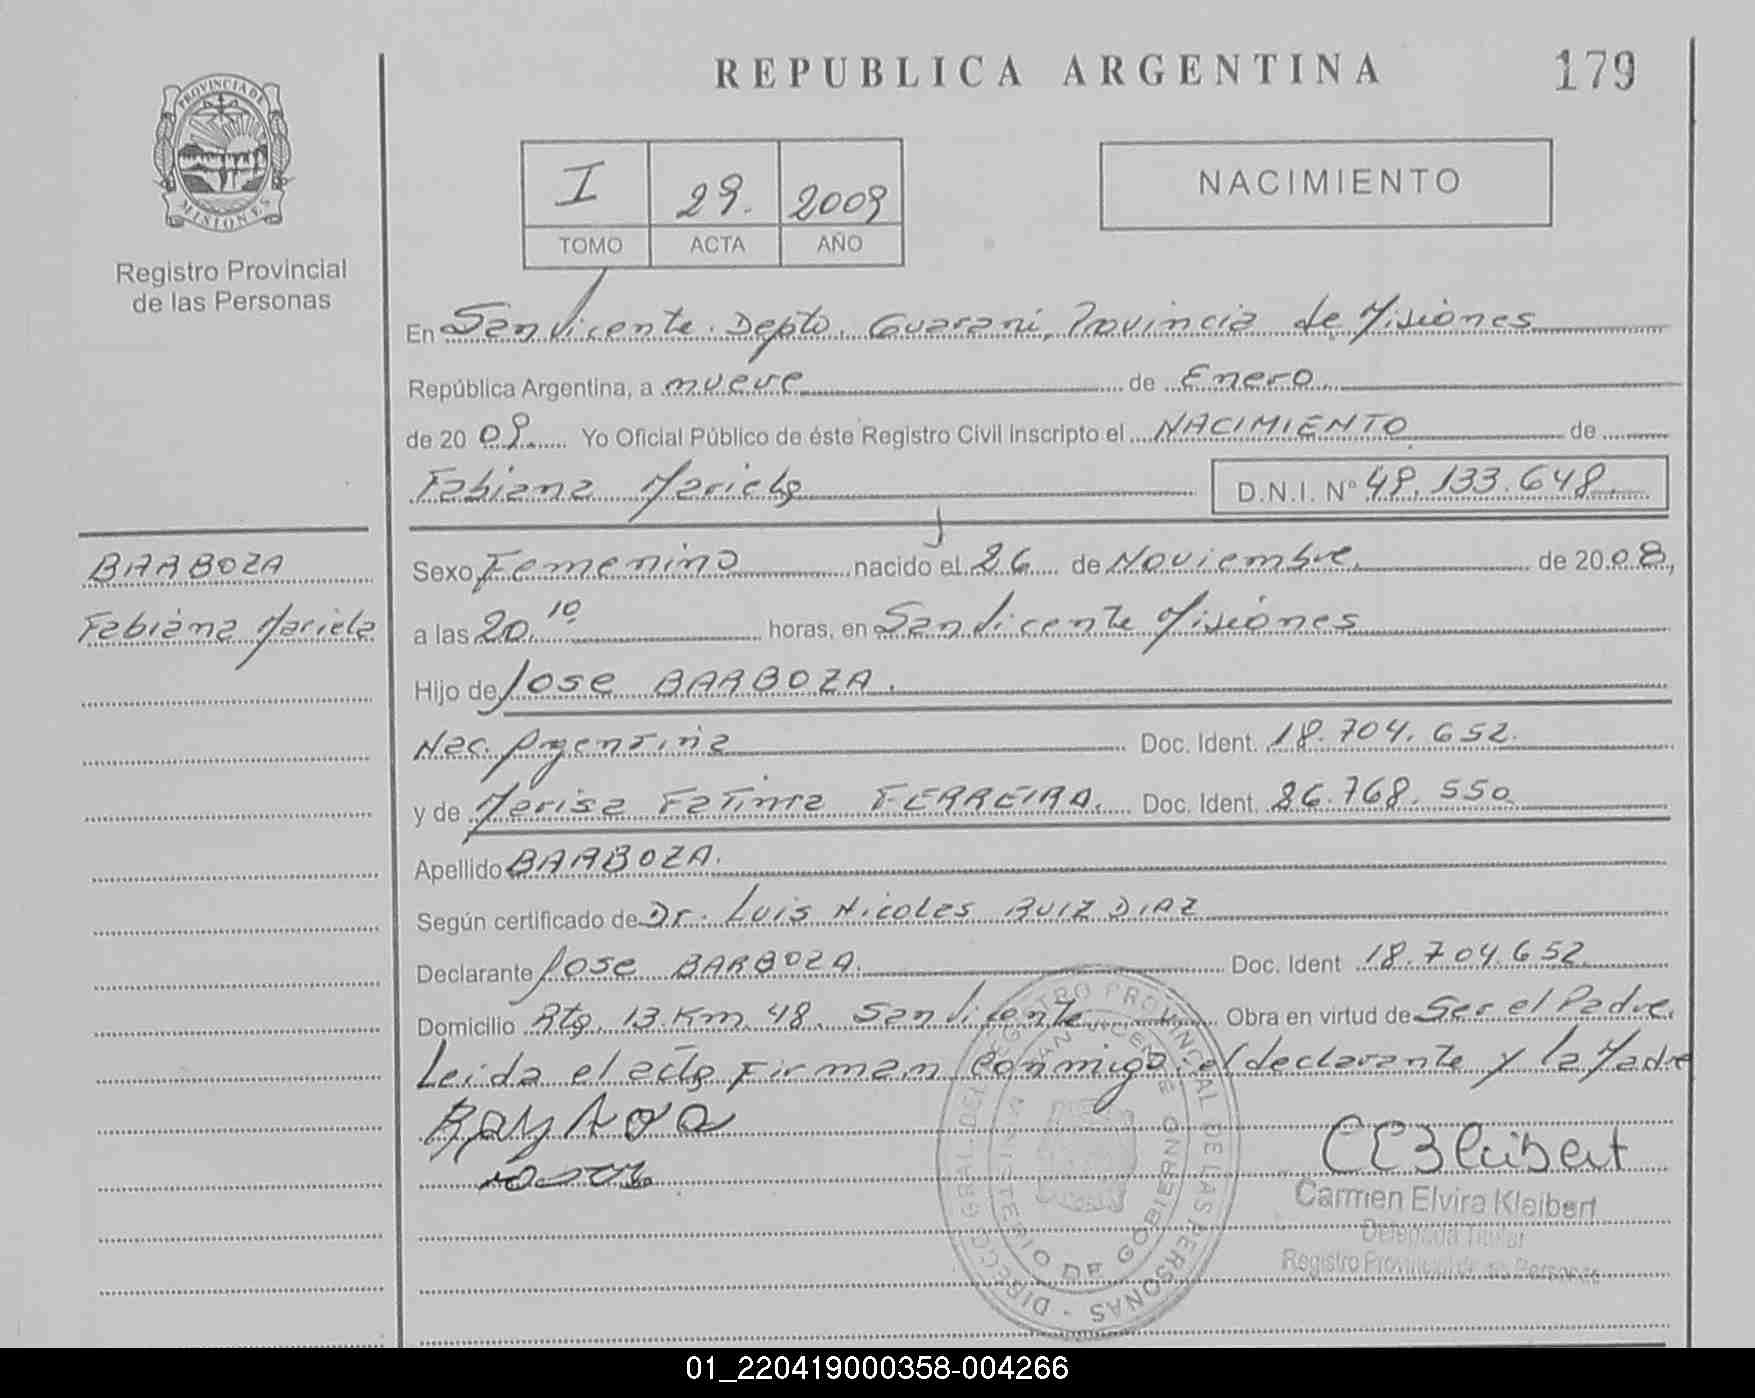 REPUBLICA ARGENTINA
179
PROVINCIA DE
MISIONES
Registro Provincial
de las Personas
I 29. 2009
TOMO ACTA AÑO
NACIMIENTO
En San Vicente. Depto. Guarani, Provincia de Misiones
República Argentina, a nueve de Enero
de 20 09. Yo Oficial Público de éste Registro Civil Inscripto el NACIMIENTO de
Fabiana Mariela
D.N.I. Nº 49.133.648.
BARBOZA
Fabiana Mariela
Sexo Femenino nacido el 26 de Noviembre. de 20 08,
a las 20 10 horas, en San Vicente Misiones
Hijo de Jose BARBOZA.
Nac. Argentina Doc. Ident. 18.704.652.
y de Marisa Fatima FERREIRA. Doc. Ident. 26.768.550
Apellido BARBOZA.
Según certificado de Dr. Luis Nicolas RUIZ DIAZ
Declarante Jose BARBOZA. Doc. Ident 18.704.652.
Domicilio Rta. 13 Km 48. San Vicente Obra en virtud de Ser el Padre.
Leida el acta Firman conmigo el declarante y la Madre
Carmen Elvira Kleibert
Delegada Titular
Registro Provincial de las Personas
DIRECC. GRAL. DEL REGISTRO PROVINCIAL DE LAS PERSONAS -
SAN VICENTE
MINISTERIO DE GOBIERNO
01_220419000358-004266